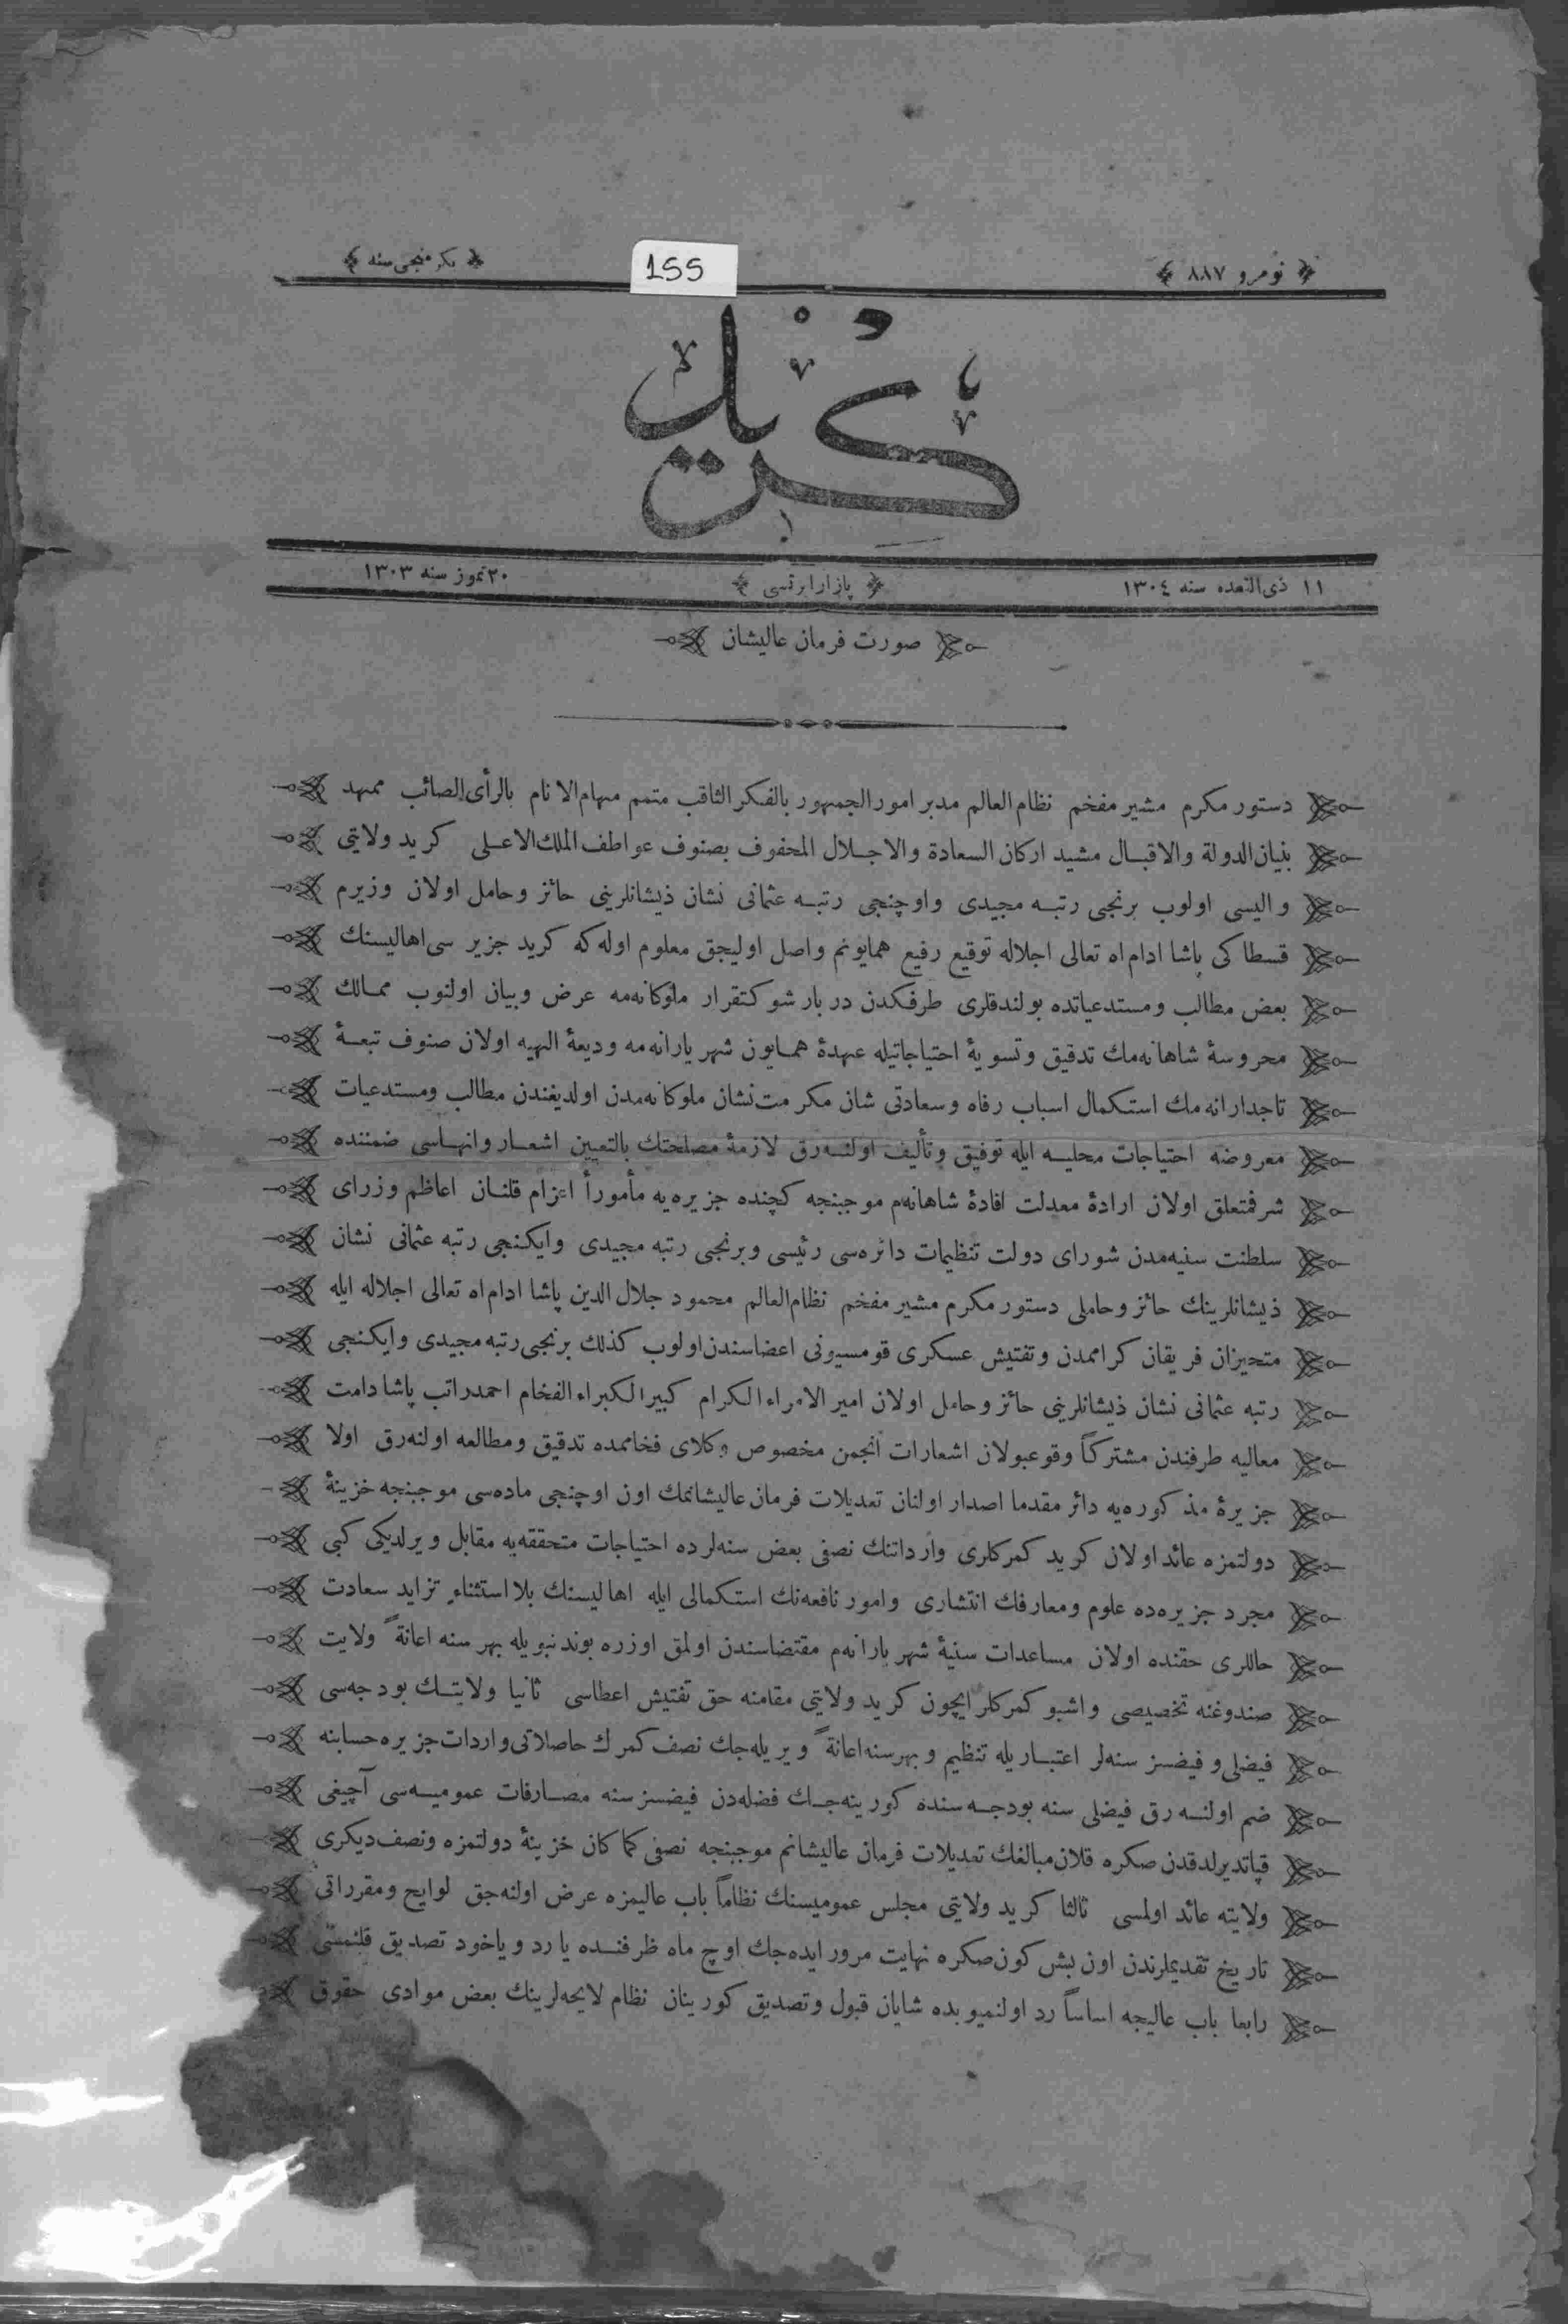 نومرو ٨٨٧
یكرمنجی سنه
155
كرید
١١ ذی القعده سنه ١٣٠٤
پازار ایرتسی
٢٠ تموز سنه ١٣٠٣
صورت فرمان عالیشان
دستور مكرم مشیر مفخم نظام العالم مدبر امور الجمهور بالفكر الثاقب متمم مهام الانام بالرأی الصائب ممهد
بنیان الدولة والاقبال مشید اركان السعادة والاجلال المحفوف بصنوف عواطف الملك الاعلی كرید ولایتی
والیسی اولوب برنجی رتبه مجیدی واوچنجی رتبه عثمانی نشان ذیشانلرینی حائز وحامل اولان وزیرم
قسطاكی پاشا ادام اه تعالی اجلاله توقیع رفیع همایونم واصل اولیجق معلوم اوله كه كرید جزیر سی اهالیسنك
بعض مطالب ومستدعیاتده بولندقلری طرفكدن دربار شوكتقرار ملوكانه مه عرض وبیان اولنوب ممالك
محروسۀ شاهانه مك تدقیق وتسویۀ احتیاجاتیله عهدۀ همایون شهریارانه مه ودیعۀ الهیه اولان صنوف تبعۀ
تاجدارانه مك استكمال اسباب رفاه وسعادتی شان مكرمت نشان ملوكانه مدن اولدیغندن مطالب ومستدعیات
معروضه احتیاجات محلیه ایله توفیق وتألیف اولنه رق لازمۀ مصلحتك بالتعیین اشعار وانهاسی ضمننده
شرفمتعلق اولان ارادۀ معدلت افادۀ شاهانه م موجبنجه كچنده جزیره یه مأموراً اعزام قلنان اعاظم وزرای
سلطنت سنیه مدن شورای دولت تنظیمات دائره سی رئیسی وبرنجی رتبه مجیدی وایكنجی رتبه عثمانی نشان
ذیشانلرینك حائز وحاملی دستور مكرم مشیر مفخم نظام العالم محمود جلال الدین پاشا ادام اه تعالی اجلاله ایله
متحیزان فریقان كراممدن وتفتیش عسكری قومسیونی اعضاسندن اولوب كذلك برنجی رتبه مجیدی وایكنجی
رتبه عثمانی نشان ذیشانلرینی حائز وحامل اولان امیر الامراء الكرام كبیر الكبراء الفخام احمد راتب پاشا دامت
معالیه طرفندن مشتركاً وقوعبولان اشعارات انجمن مخصوص وكلای فخاممده تدقیق ومطالعه اولنه رق اولا
جزیرۀ مذكوره یه دائر مقدما اصدار اولنان تعدیلات فرمان عالیشانمك اون اوچنجی ماده سی موجبنجه خزینۀ
دولتمزه عائد اولان كرید كمركلری وارداتنك نصفی بعض سنه لرده احتیاجات متحققه یه مقابل ویرلدیكی كبی
مجرد جزیره ده علوم ومعارفك انتشاری وامور نافعه نك استكمالی ایله اهالیسنك بلا استثناء تزاید سعادت
حاللری حقنده اولان مساعدات سنیۀ شهریارانه م مقتضاسندن اولمق اوزره بوندنبویله بهر سنه اعانةً ولایت
صندوغنه تخصیصی واشبو كمركلر ایچون كرید ولایتی مقامنه حق تفتیش اعطاسی ثانیا ولایتك بودجه سی
فیضلی وفیضسز سنه لر اعتباریله تنظیم وبهر سنه اعانةً ویریله جك نصف كمرك حاصلاتی واردات جزیره حسابنه
ضم اولنه رق فیضلی سنه بودجه سنده كورینه جك فضله دن فیضسز سنه مصارفات عمومیه سی آچیغی
قپاتدیرلدقدن صكره قلان مبالغك تعدیلات فرمان عالیشانم موجبنجه نصفی كما كان خزینۀ دولتمزه ونصف دیكری
ولایته عائد اولمسی ثالثا كرید ولایتی مجلس عمومیسنك نظاماً باب عالیمزه عرض اولنه جق لوایح ومقرراتی
تاریخ تقدیملرندن اون بش كون صكره نهایت مرور ایده جك اوچ ماه ظرفنده یا رد ویاخود تصدیق قلنمسی
رابعا باب عالیجه اساساً رد اولنمیوبده شایان قبول وتصدیق كورینان نظام لایحه لرینك بعض موادی حقوق